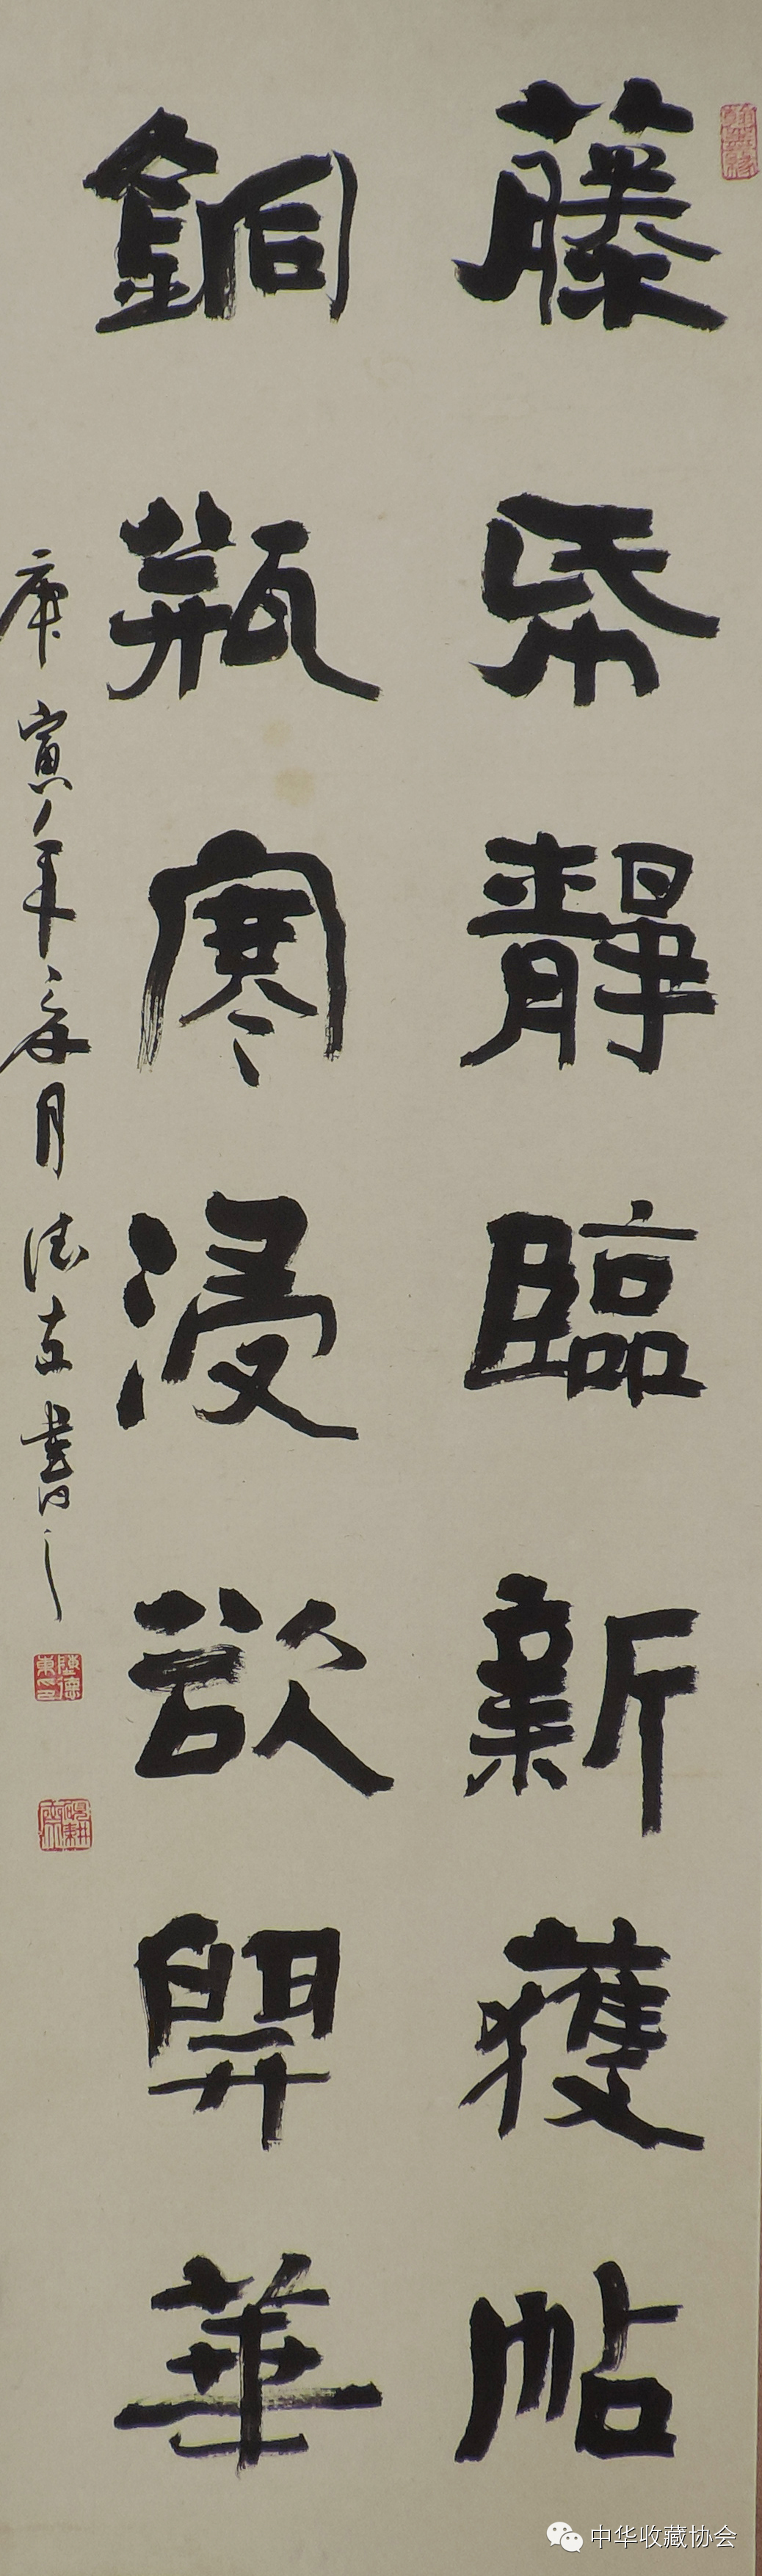 藤帋靜臨新獲帖
銅瓶寒浸欲開華
庚寅年冬月德直書之
中华收藏协会